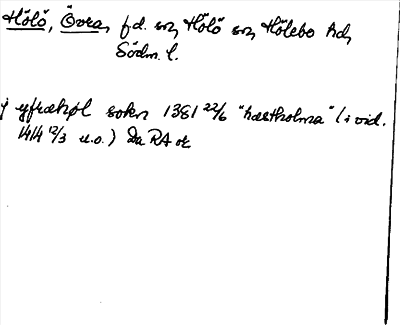 Hölö, Övra, f.d. sn, Hölö sn, Hölebo hd,
Södm. l.
j yfræhøl sokn 1381 22/6 "hæstholma" (i vid.
1414 12/3 u.o.) Da RA or